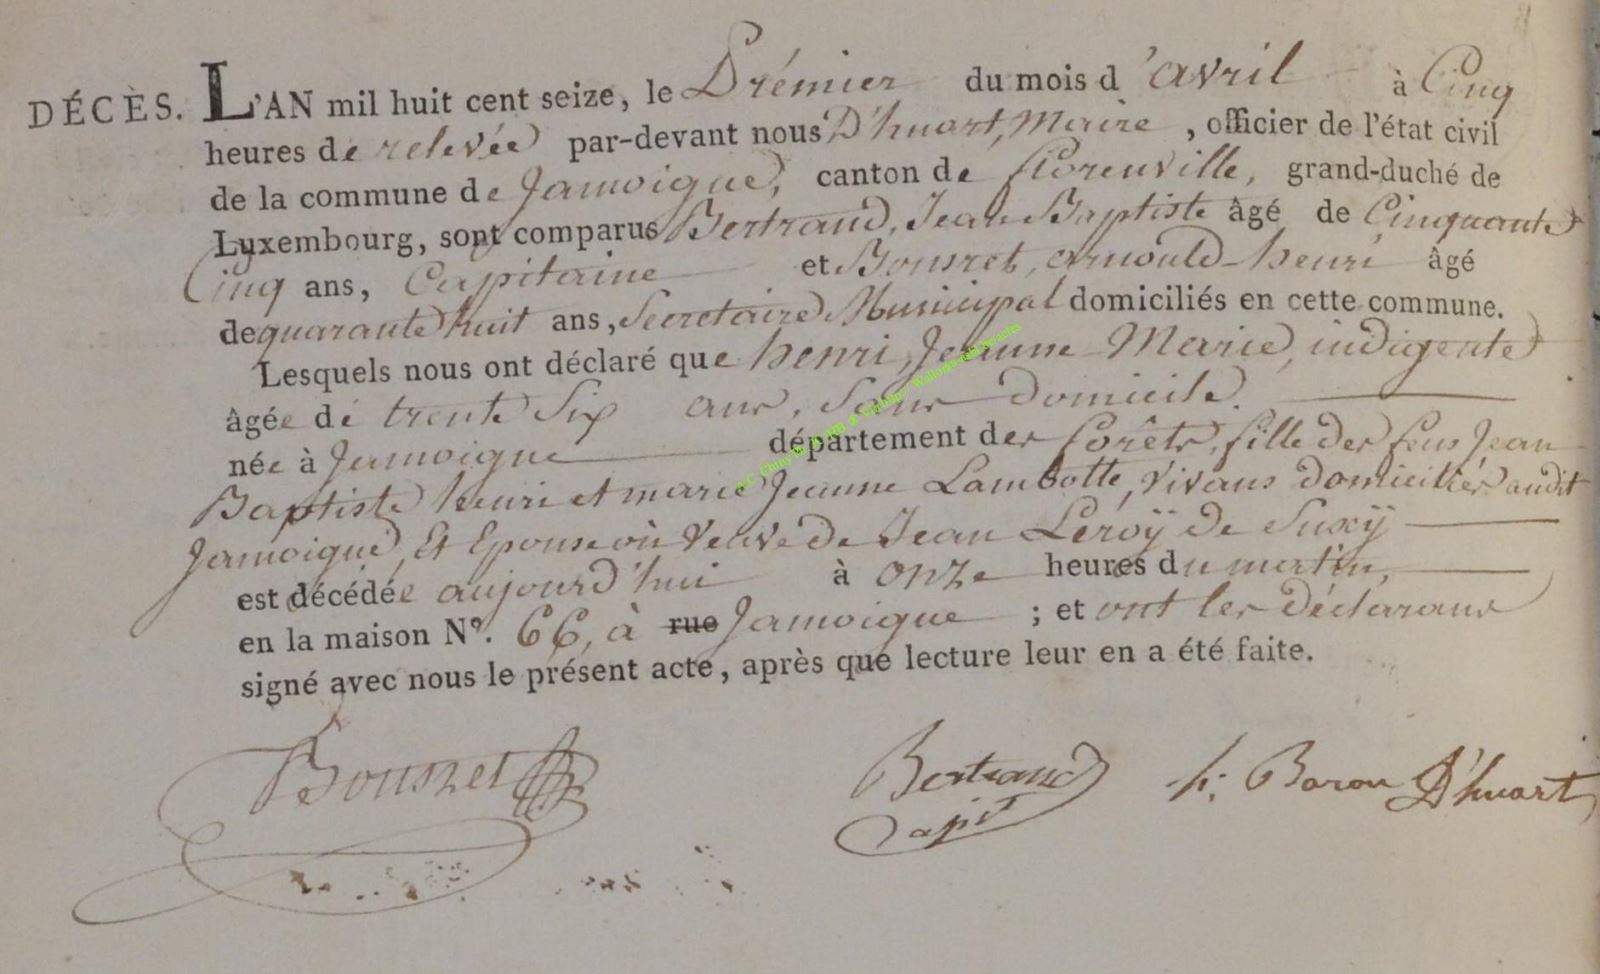 DÉCÈS. L'AN mil huit cent seize, le Prémier du mois d'avril à Cinq
heures de relevée par-devant nous D'huart, Maire, officier de l'état civil
de la commune de Jamoigue, canton de florenville, grand-duché de
Luxembourg, sont comparus Bertrand, Jean Baptiste âgé de Cinquante
Cinq ans, Capitaine et Bousret, arnould henri âgé
de quarante huit ans, Secretaire Municipal domiciliés en cette commune.
Lesquels nous ont déclaré que henri, Jeanne Marie, indigente
âgée de trente Six ans, sans domicile.
née à Jamoigue département des forêts, fille des feus Jean
Baptiste henri et marie Jeanne Lambotte, vivans domiciliés audit
Jamoigue, Et Epouse où Veuve de Jean Leroÿ de Suxÿ
est décédée aujourd'hui à onze heures du matin,
en la maison Nº. 66, à rue Jamoigue ; et ont les déclarans
signé avec nous le présent acte, après que lecture leur en a été faite.
Bousret Bertrand h: Baron D'huart
Capit